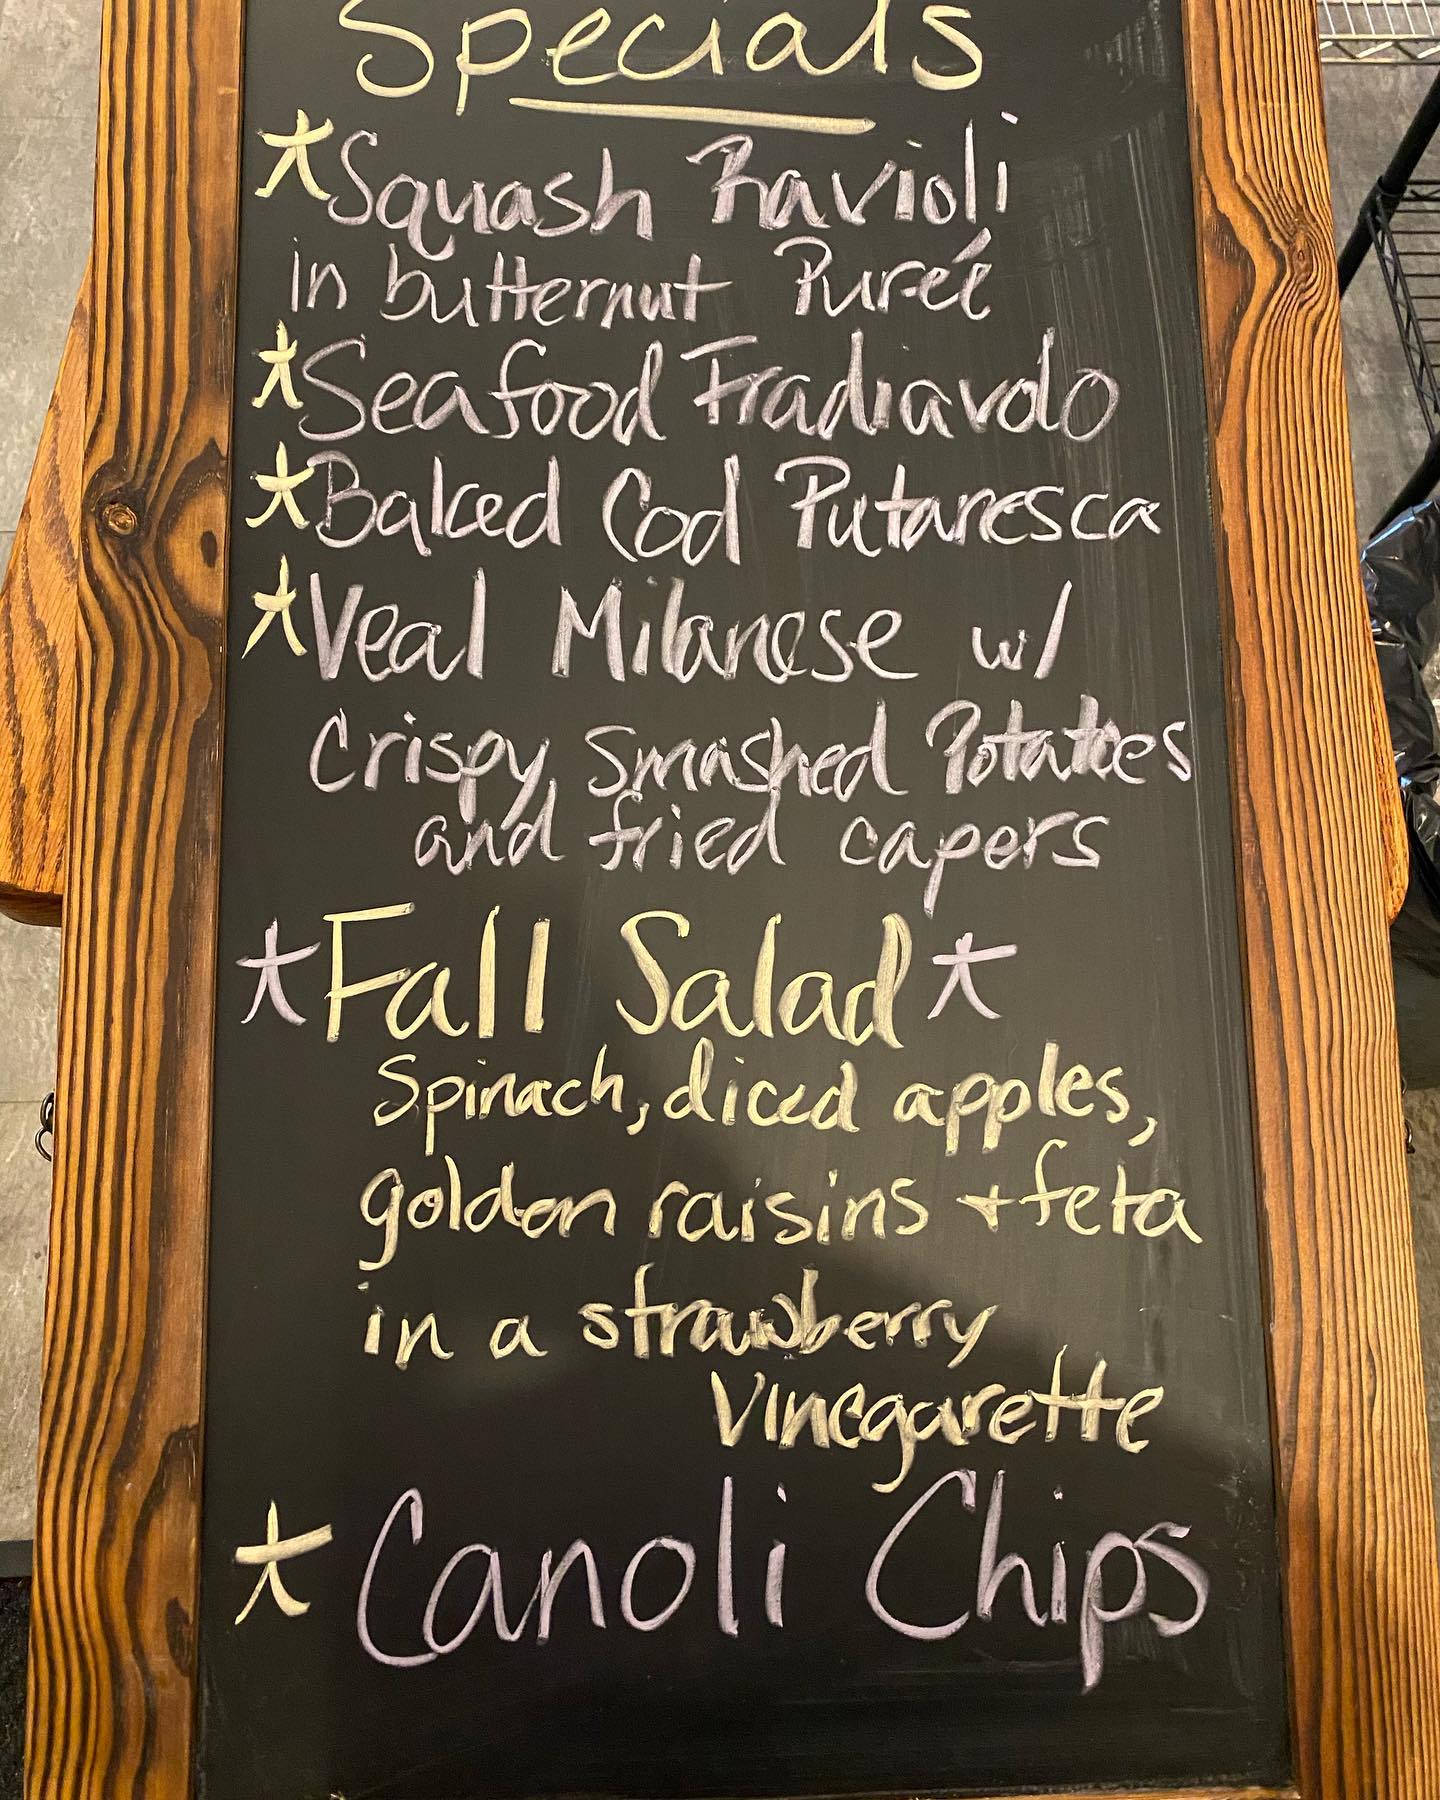 Specials
*Squash Ravioli
in butternut Pureé
*Seafood Fradiavolo
*Baked Cod Putanesca
*Veal Milanese w/
Crispy Smashed Potatoes
and fried capers
*Fall Salad*
Spinach, diced apples,
golden raisins + feta
in a strawberry
Vinegarette
*Canoli Chips